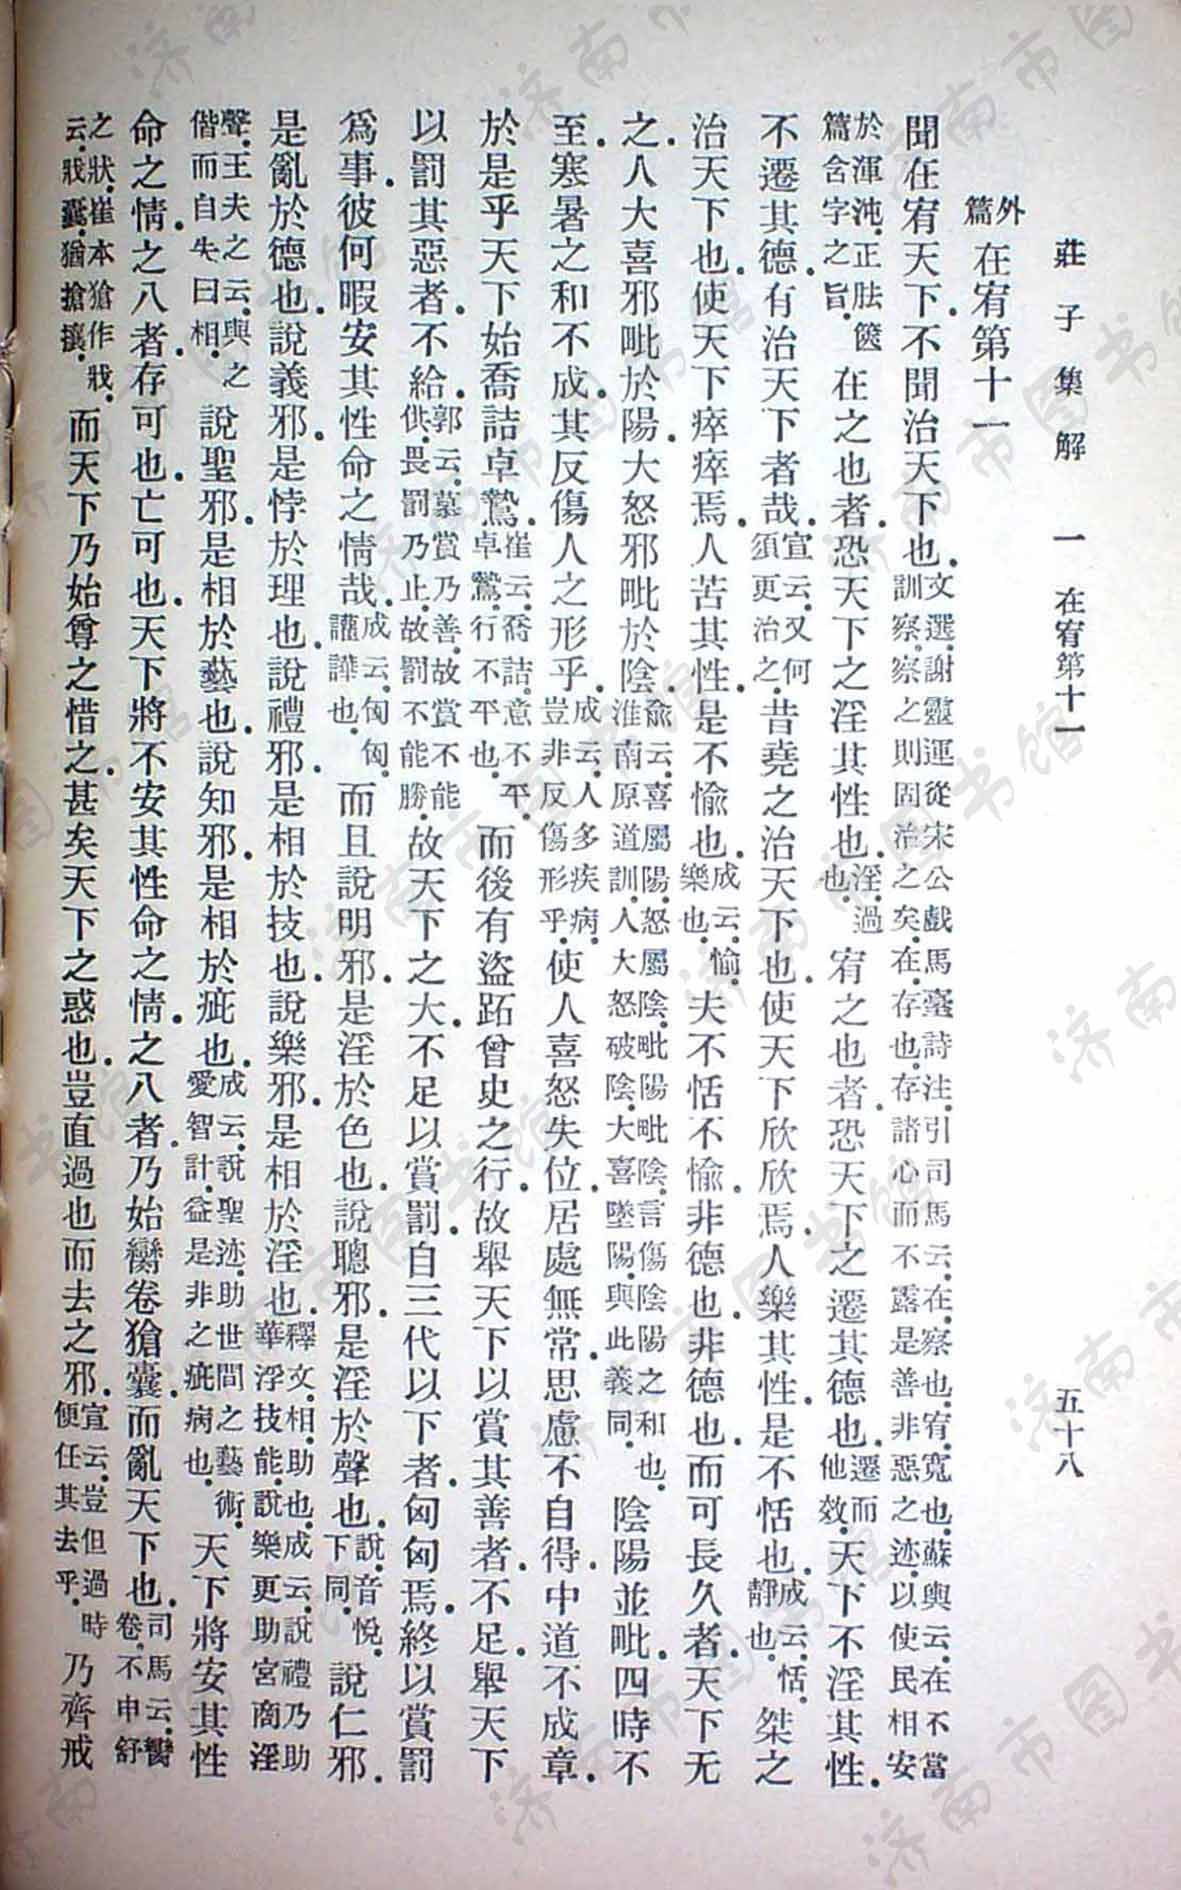 莊子集解　一　在宥第十一　五十八
外篇　在宥第十一
聞在宥天下．不聞治天下也．文選謝靈運從宋公戲馬臺詩注．引司馬云．在．察也．宥．寬也．蘇輿云．在不當訓察．察之則固治之矣．在．存也．存諸心而不露是善非惡之迹．以使民相安
於渾沌．正胠篋篇含字之旨．在之也者．恐天下之淫其性也．淫．過也．宥之也者．恐天下之遷其德也．遷而他效．天下不淫其性．
不遷其德．有治天下者哉．宣云．又何須更治之．昔堯之治天下也．使天下欣欣焉．人樂其性．是不恬也．成云．恬．靜也．桀之
治天下也．使天下瘁瘁焉．人苦其性．是不愉也．成云．愉．樂也．夫不恬不愉．非德也．非德也．而可長久者．天下无
之．人大喜邪毗於陽．大怒邪毗於陰．俞云．喜屬陽．怒屬陰．毗陽毗陰．言傷陰陽之和也．淮南原道訓．人大怒破陰．大喜墜陽．與此義同．陰陽並毗．四時不
至．寒暑之和不成．其反傷人之形乎．成云．人多疾病．豈非反傷形乎．使人喜怒失位．居處無常．思慮不自得．中道不成章．
於是乎天下始喬詰卓鷙．崔云．喬詰．意不平．卓鷙．行不平也．而後有盜跖曾史之行．故舉天下以賞其善者．不足．舉天下
以罰其惡者．不給．郭云．慕賞乃善．故賞不能供．畏罰乃止．故罰不能勝．故天下之大．不足以賞罰．自三代以下者．匈匈焉．終以賞罰
爲事．彼何暇安其性命之情哉．成云．匈匈．讙譁也．而且說明邪．是淫於色也．說聰邪．是淫於聲也．說．音悅．下同．說仁邪．
是亂於德也．說義邪．是悖於理也．說禮邪．是相於技也．說樂邪．是相於淫也．釋文．相．助也．成云．說禮乃助華浮技能．說樂更助宮商淫
聲．王夫之云．與之偕而自失曰相．說聖邪．是相於藝也．說知邪．是相於疵也．成云．說聖迹．助世間之藝術．愛智計．益是非之疵病也．天下將安其性
命之情．之八者．存可也．亡可也．天下將不安其性命之情．之八者．乃始臠卷獊囊．而亂天下也．司馬云．臠卷．不申舒
之狀．崔本獊作戕．云．戕囊．猶搶攘．而天下乃始尊之惜之．甚矣天下之惑也．豈直過也而去之邪．宣云．豈但過時便任其去乎．乃齊戒